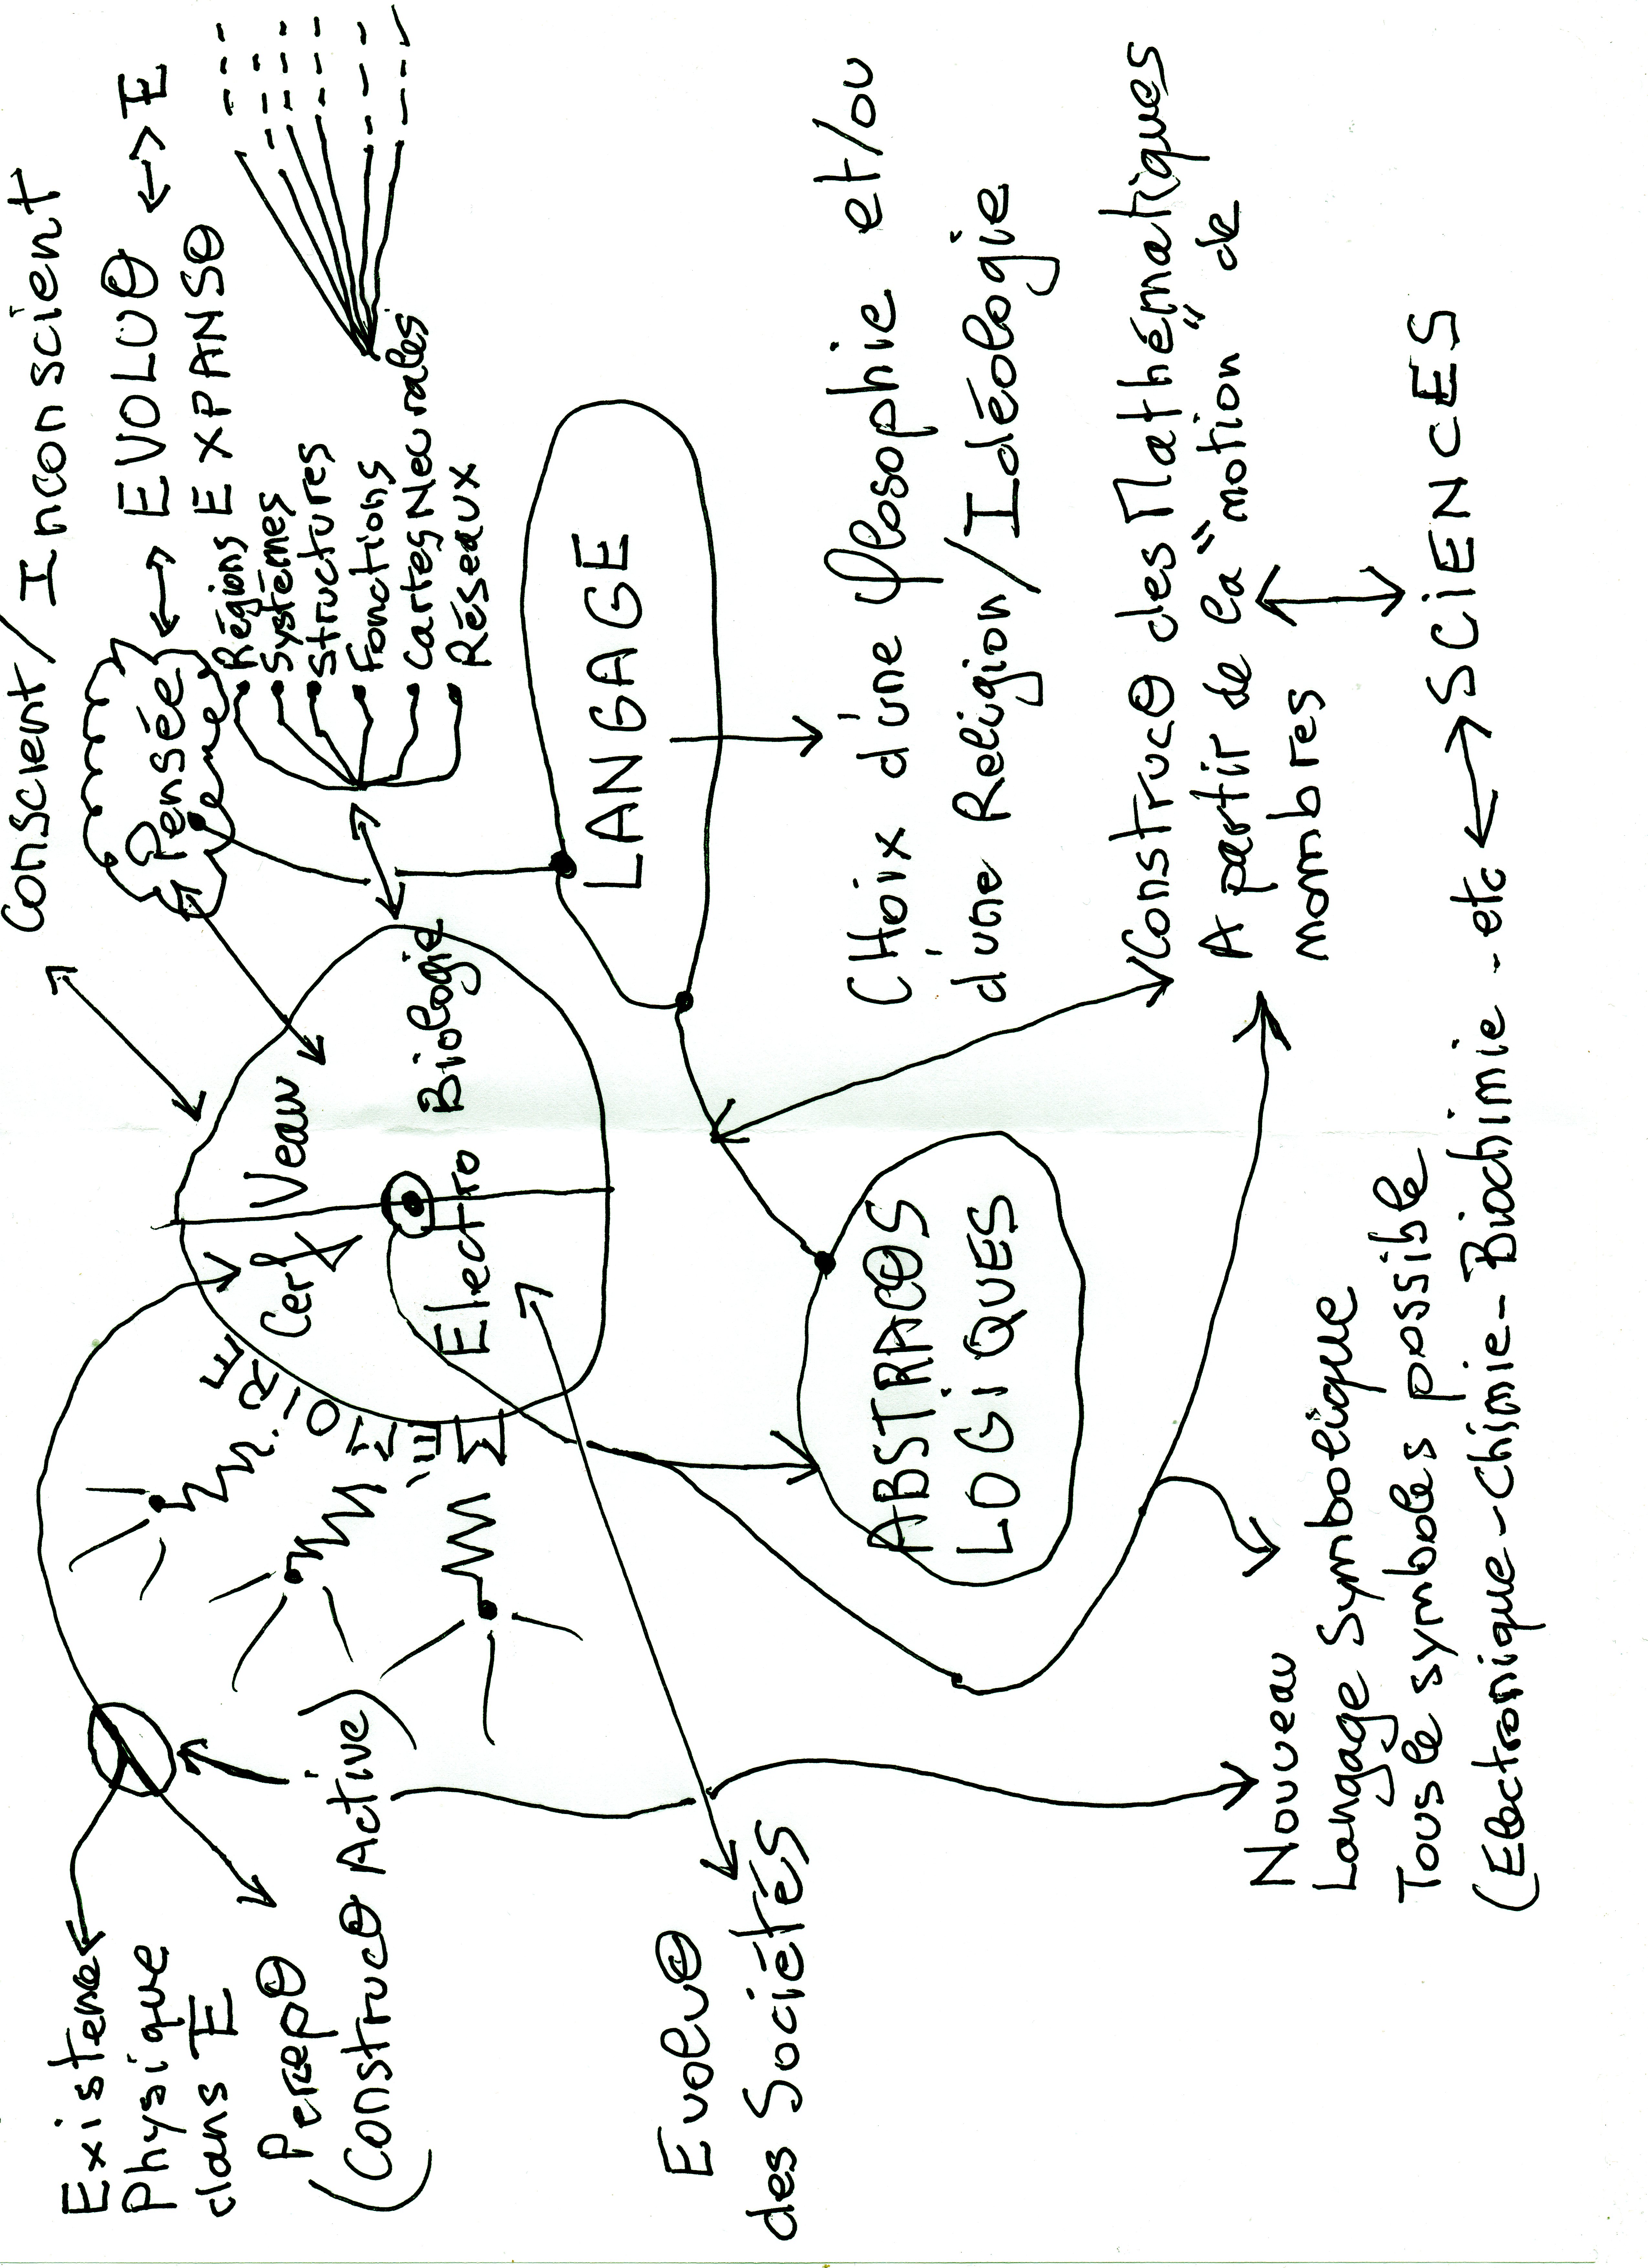 Conscient/Inconscient
Existence
Physique
dans E
Percepθ
(Construcθ Active)
MÉMOIRE
Cerveau
Electro Biologie
Pensée
EVOLUθ ↔ E
EXPANSθ
Régions
Systèmes
Structures
Fonctions
Cartes Neurales
Réseaux
LANGAGE
Evoluθ
des Sociétés
ABSTRACθS
LOGiQUES
CHoix d'une philosophie et/ou
d'une Religion/Idéologie
Construcθ des Mathématiques
A partir de la "notion" de
nombres
Nouveau
Langage Symbolique
Tous le symboles possible
(Electronique-Chimie-Biochimie-etc ↔ SCiENCES